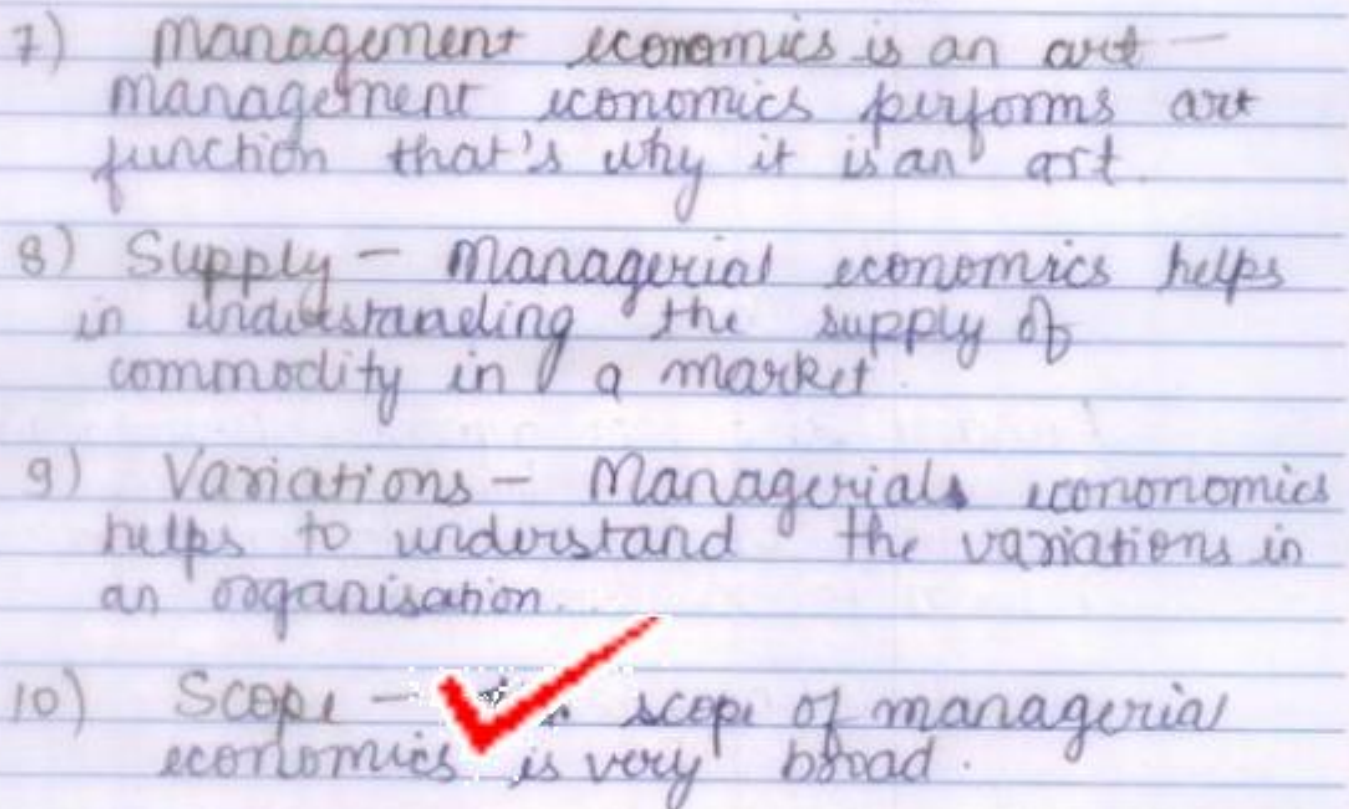 7) Management economics is an art —
Management economics performs art
function that's why it is an art.
8) Supply - Managerial economics helps
in understanding the supply of
commodity in a market.
9) Variations - Managerials econonomics
helps to understand the variations in
an organisation.
10) Scope - scope of managerial
economics is very broad.